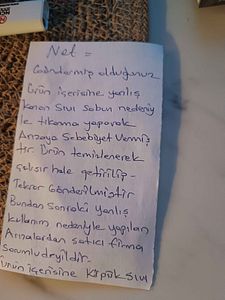 Not =
Göndermiş olduğunuz
Ürün içerisine yanlış
Konan Sıvı Sabun nedeniy
le tıkama yaparak
Arızaya Sebebiyet Vermiş
tir. Ürün temizlenerek
çalışır hale getirilip-
Tekrar Gönderilmiştir
Bundan Sonraki Yanlış
kullanım nedeniyle yapılan
Arızalardan satıcı firma
Sorumludeyildir.
Ürün içerisine Köpük Sıvı